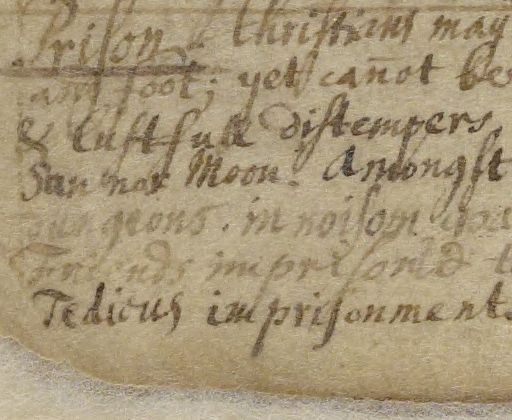 Prison Christians may
and foot; yet can̄ot be
& lustfull distempers.
Sun nor Moon. Amongst
Dungeons. in noisom
imprison'd
Tedious imprisonments